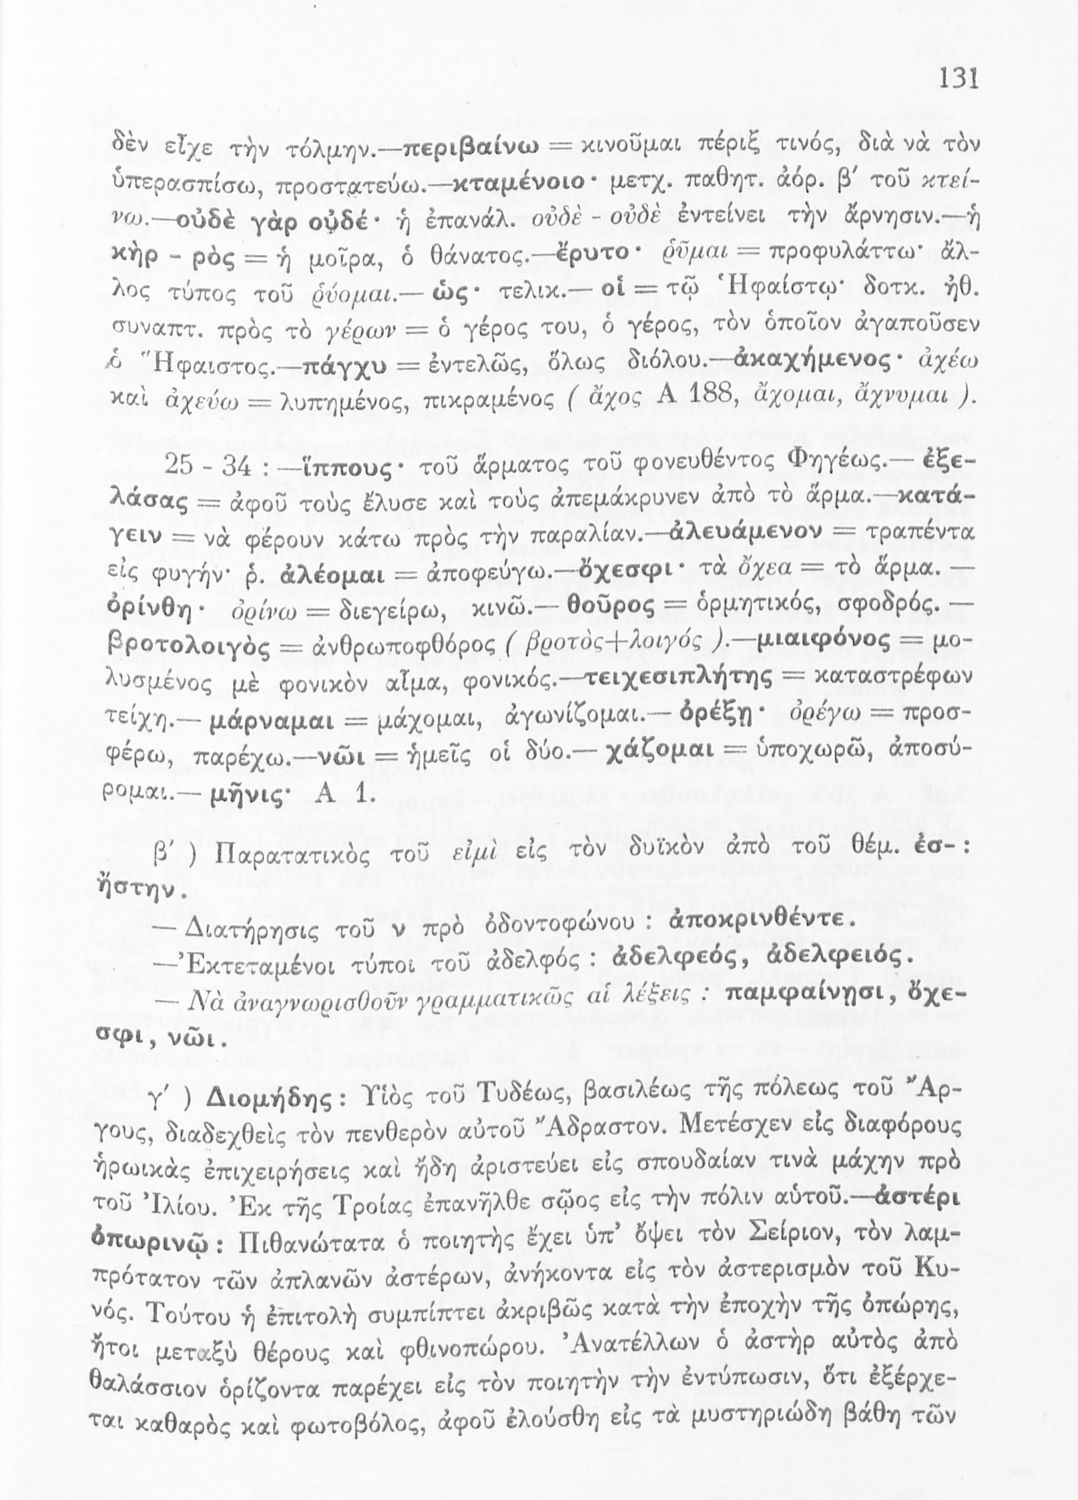 131
δὲν εἶχε τὴν τόλμην.—περιβαίνω = κινοῦμαι πέριξ τινός, διὰ νὰ τὸν
ὑπερασπίσω, προστατεύω.—κταμένοιο· μετχ. παθητ. ἀόρ. β′ τοῦ κτεί-
νω.—οὐδὲ γὰρ οὐδέ· ἡ ἐπανάλ. οὐδὲ - οὐδὲ ἐντείνει τὴν ἄρνησιν.—ἡ
κὴρ - ρὸς = ἡ μοῖρα, ὁ θάνατος.—ἔρυτο· ῥῦμαι = προφυλάττω· ἄλ-
λος τύπος τοῦ ῥύομαι.— ὡς· τελικ.— οἱ = τῷ Ἡφαίστῳ· δοτκ. ἠθ.
συναπτ. πρὸς τὸ γέρων = ὁ γέρος του, ὁ γέρος, τὸν ὁποῖον ἀγαποῦσεν
ὁ Ἥφαιστος.—πάγχυ = ἐντελῶς, ὅλως διόλου.—ἀκαχήμενος· ἀχέω
καὶ ἀχεύω = λυπημένος, πικραμένος ( ἄχος Α 188, ἄχομαι, ἄχνυμαι ).
25 - 34 : —ἵππους· τοῦ ἅρματος τοῦ φονευθέντος Φηγέως.— ἐξε-
λάσας = ἀφοῦ τοὺς ἔλυσε καὶ τοὺς ἀπεμάκρυνεν ἀπὸ τὸ ἅρμα.—κατά-
γειν = νὰ φέρουν κάτω πρὸς τὴν παραλίαν.—ἀλευάμενον = τραπέντα
εἰς φυγήν· ῥ. ἀλέομαι = ἀποφεύγω.—ὄχεσφι· τὰ ὄχεα = τὸ ἅρμα. —
ὀρίνθη· ὀρίνω = διεγείρω, κινῶ.— θοῦρος = ὁρμητικός, σφοδρός. —
βροτολοιγὸς = ἀνθρωποφθόρος ( βροτὸς+λοιγός ).—μιαιφόνος = μο-
λυσμένος μὲ φονικὸν αἷμα, φονικός.—τειχεσιπλήτης = καταστρέφων
τείχη.— μάρναμαι = μάχομαι, ἀγωνίζομαι.— ὀρέξῃ· ὀρέγω = προσ-
φέρω, παρέχω.—νῶι = ἡμεῖς οἱ δύο.— χάζομαι = ὑποχωρῶ, ἀποσύ-
ρομαι.— μῆνις· Α 1.
β′ ) Παρατατικὸς τοῦ εἰμὶ εἰς τὸν δυϊκὸν ἀπὸ τοῦ θέμ. ἐσ- :
ἤστην.
— Διατήρησις τοῦ ν πρὸ ὀδοντοφώνου : ἀποκρινθέντε.
—Ἐκτεταμένοι τύποι τοῦ ἀδελφός : ἀδελφεός, ἀδελφειός.
— Νὰ ἀναγνωρισθοῦν γραμματικῶς αἱ λέξεις : παμφαίνῃσι, ὄχε-
σφι, νῶι.
γ′ ) Διομήδης : Υἱὸς τοῦ Τυδέως, βασιλέως τῆς πόλεως τοῦ Ἄρ-
γους, διαδεχθεὶς τὸν πενθερὸν αὐτοῦ Ἄδραστον. Μετέσχεν εἰς διαφόρους
ἡρωικὰς ἐπιχειρήσεις καὶ ἤδη ἀριστεύει εἰς σπουδαίαν τινὰ μάχην πρὸ
τοῦ Ἰλίου. Ἐκ τῆς Τροίας ἐπανῆλθε σῷος εἰς τὴν πόλιν αὑτοῦ.—ἀστέρι
ὀπωρινῷ : Πιθανώτατα ὁ ποιητὴς ἔχει ὑπ’ ὄψει τὸν Σείριον, τὸν λαμ-
πρότατον τῶν ἀπλανῶν ἀστέρων, ἀνήκοντα εἰς τὸν ἀστερισμὸν τοῦ Κυ-
νός. Τούτου ἡ ἐπιτολὴ συμπίπτει ἀκριβῶς κατὰ τὴν ἐποχὴν τῆς ὀπώρης,
ἤτοι μεταξὺ θέρους καὶ φθινοπώρου. Ἀνατέλλων ὁ ἀστὴρ αὐτὸς ἀπὸ
θαλάσσιον ὁρίζοντα παρέχει εἰς τὸν ποιητὴν τὴν ἐντύπωσιν, ὅτι ἐξέρχε-
ται καθαρὸς καὶ φωτοβόλος, ἀφοῦ ἐλούσθη εἰς τὰ μυστηριώδη βάθη τῶν